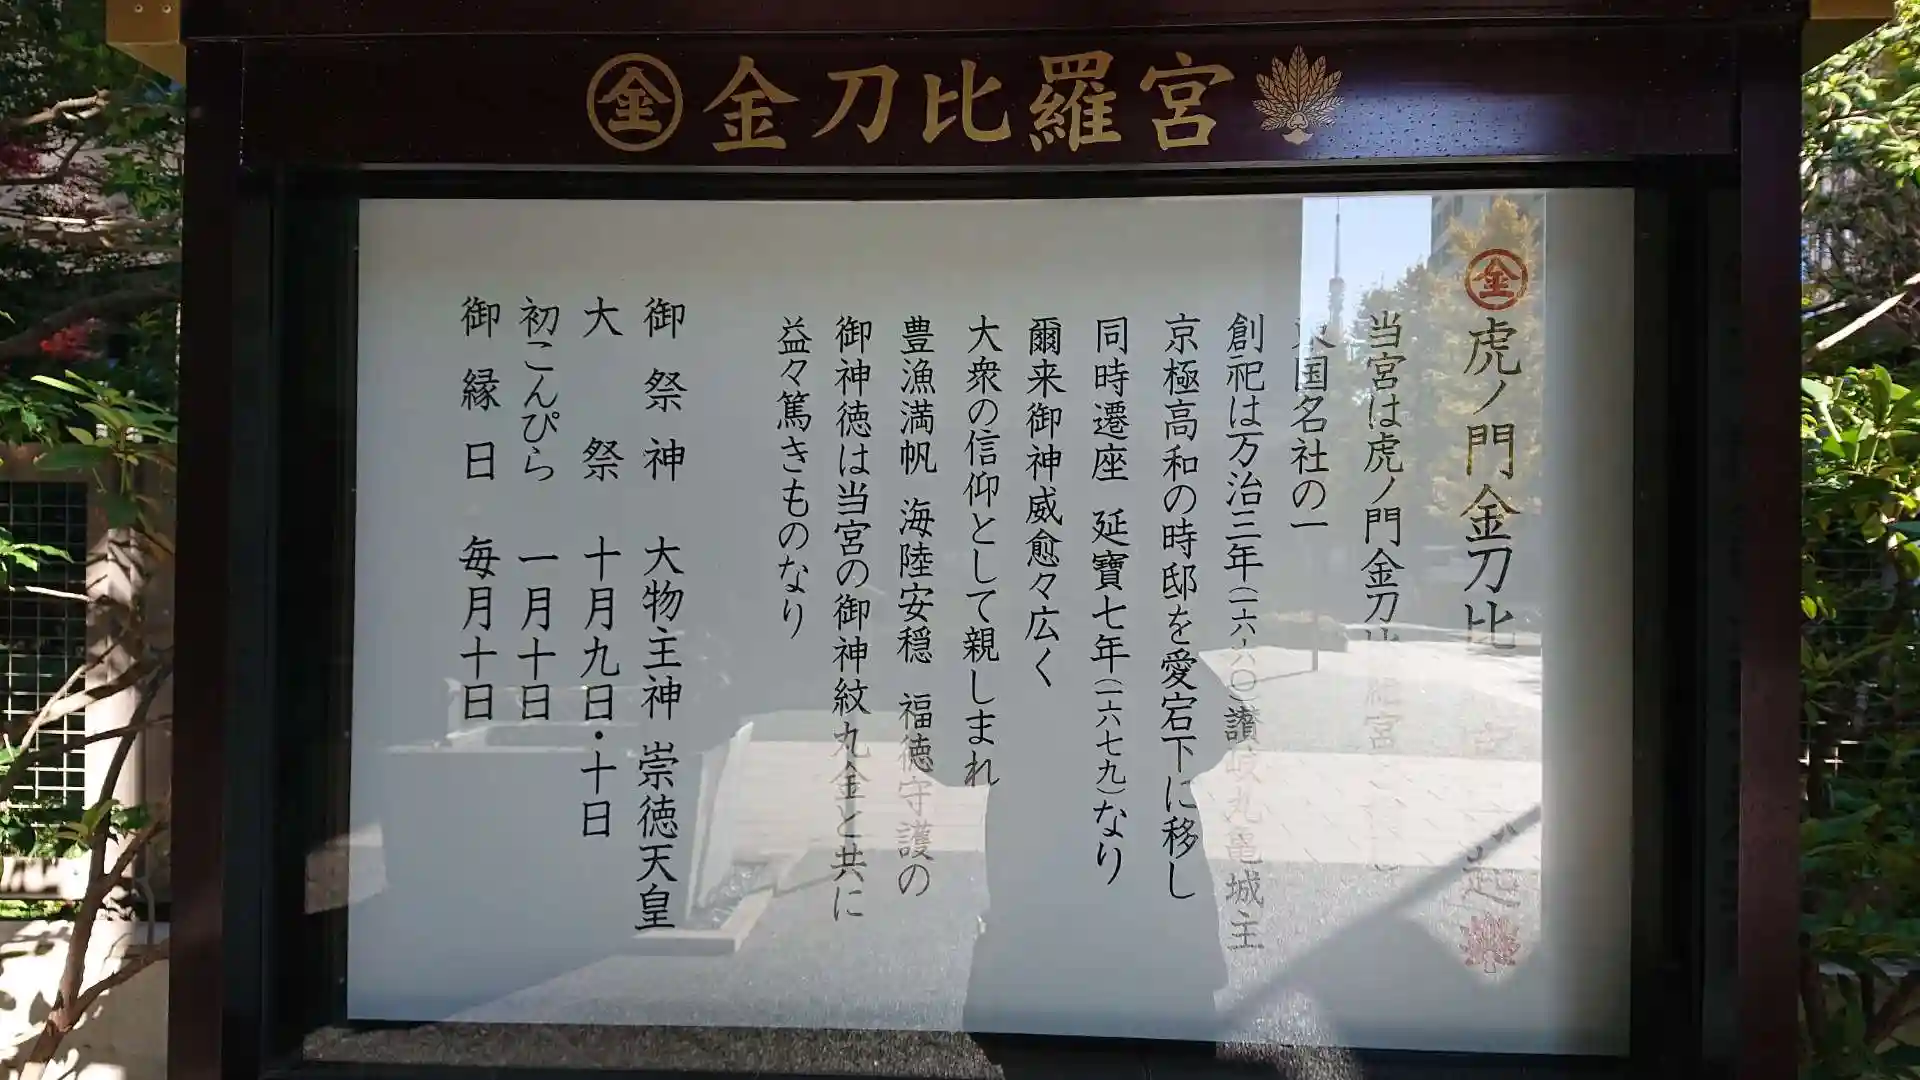 金 金刀比羅宮
金 虎ノ門金刀比 宮 起
当宮は虎ノ門金刀比羅宮
東国名社の一
創祀は万治三年(一六六〇)讃岐丸亀城主
京極高和の時邸を愛宕下に移し
同時遷座 延寶七年(一六七九)なり
爾来御神威愈々広く
大衆の信仰として親しまれ
豊漁満帆 海陸安穏 福徳守護の
御神徳は当宮の御神紋丸金と共に
益々篤きものなり
御祭神 大物主神 崇徳天皇
大祭 十月九日・十日
初こんぴら 一月十日
御縁日 毎月十日